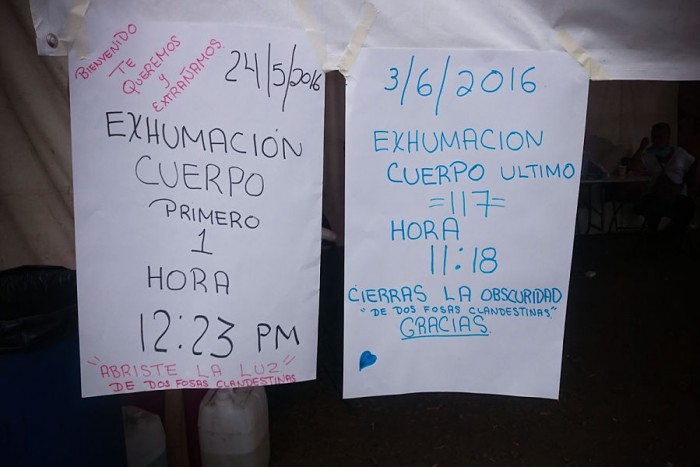 BIENVENIDO
TE
QUEREMOS
y
EXTRAÑAMOS.
24/5/2016
EXHUMACIÓN
CUERPO
PRIMERO
1
HORA
12:23 PM
"ABRISTE LA LUZ"
DE DOS FOSAS CLANDESTINAS
3/6/2016
EXHUMACION
CUERPO ULTIMO
=117=
HORA
11:18
CIERRAS LA OBSCURIDAD
"DE DOS FOSAS CLANDESTINAS."
GRACIAS.